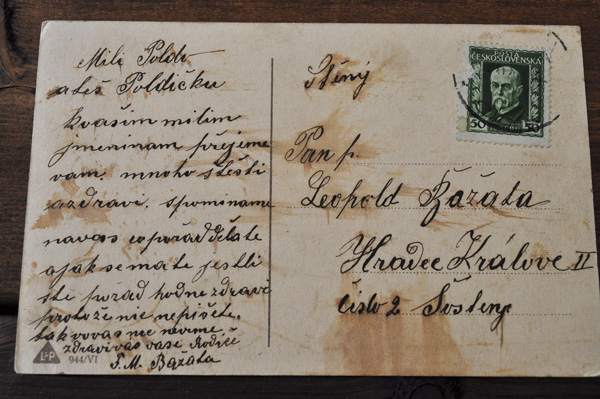 Milí Poldo
a též Poldičku
kvašim milim
jmeninam přejeme
vam. mnoho stěsti
a zdravi. spominame
navas co pořad Dělate
a jak se mate jestli
ste pořad hodne zdravi
protože nic nepišete.
tak vovas nic nevime
zdravi vas vase Rodiče
F. M. Bažata
L&P
944/VI
Ctěný
Pan p.
Leopold Bažata
Hradec Králove II
číslo 2
POŠTA
ČESKOSLOVENSKÁ
50 50